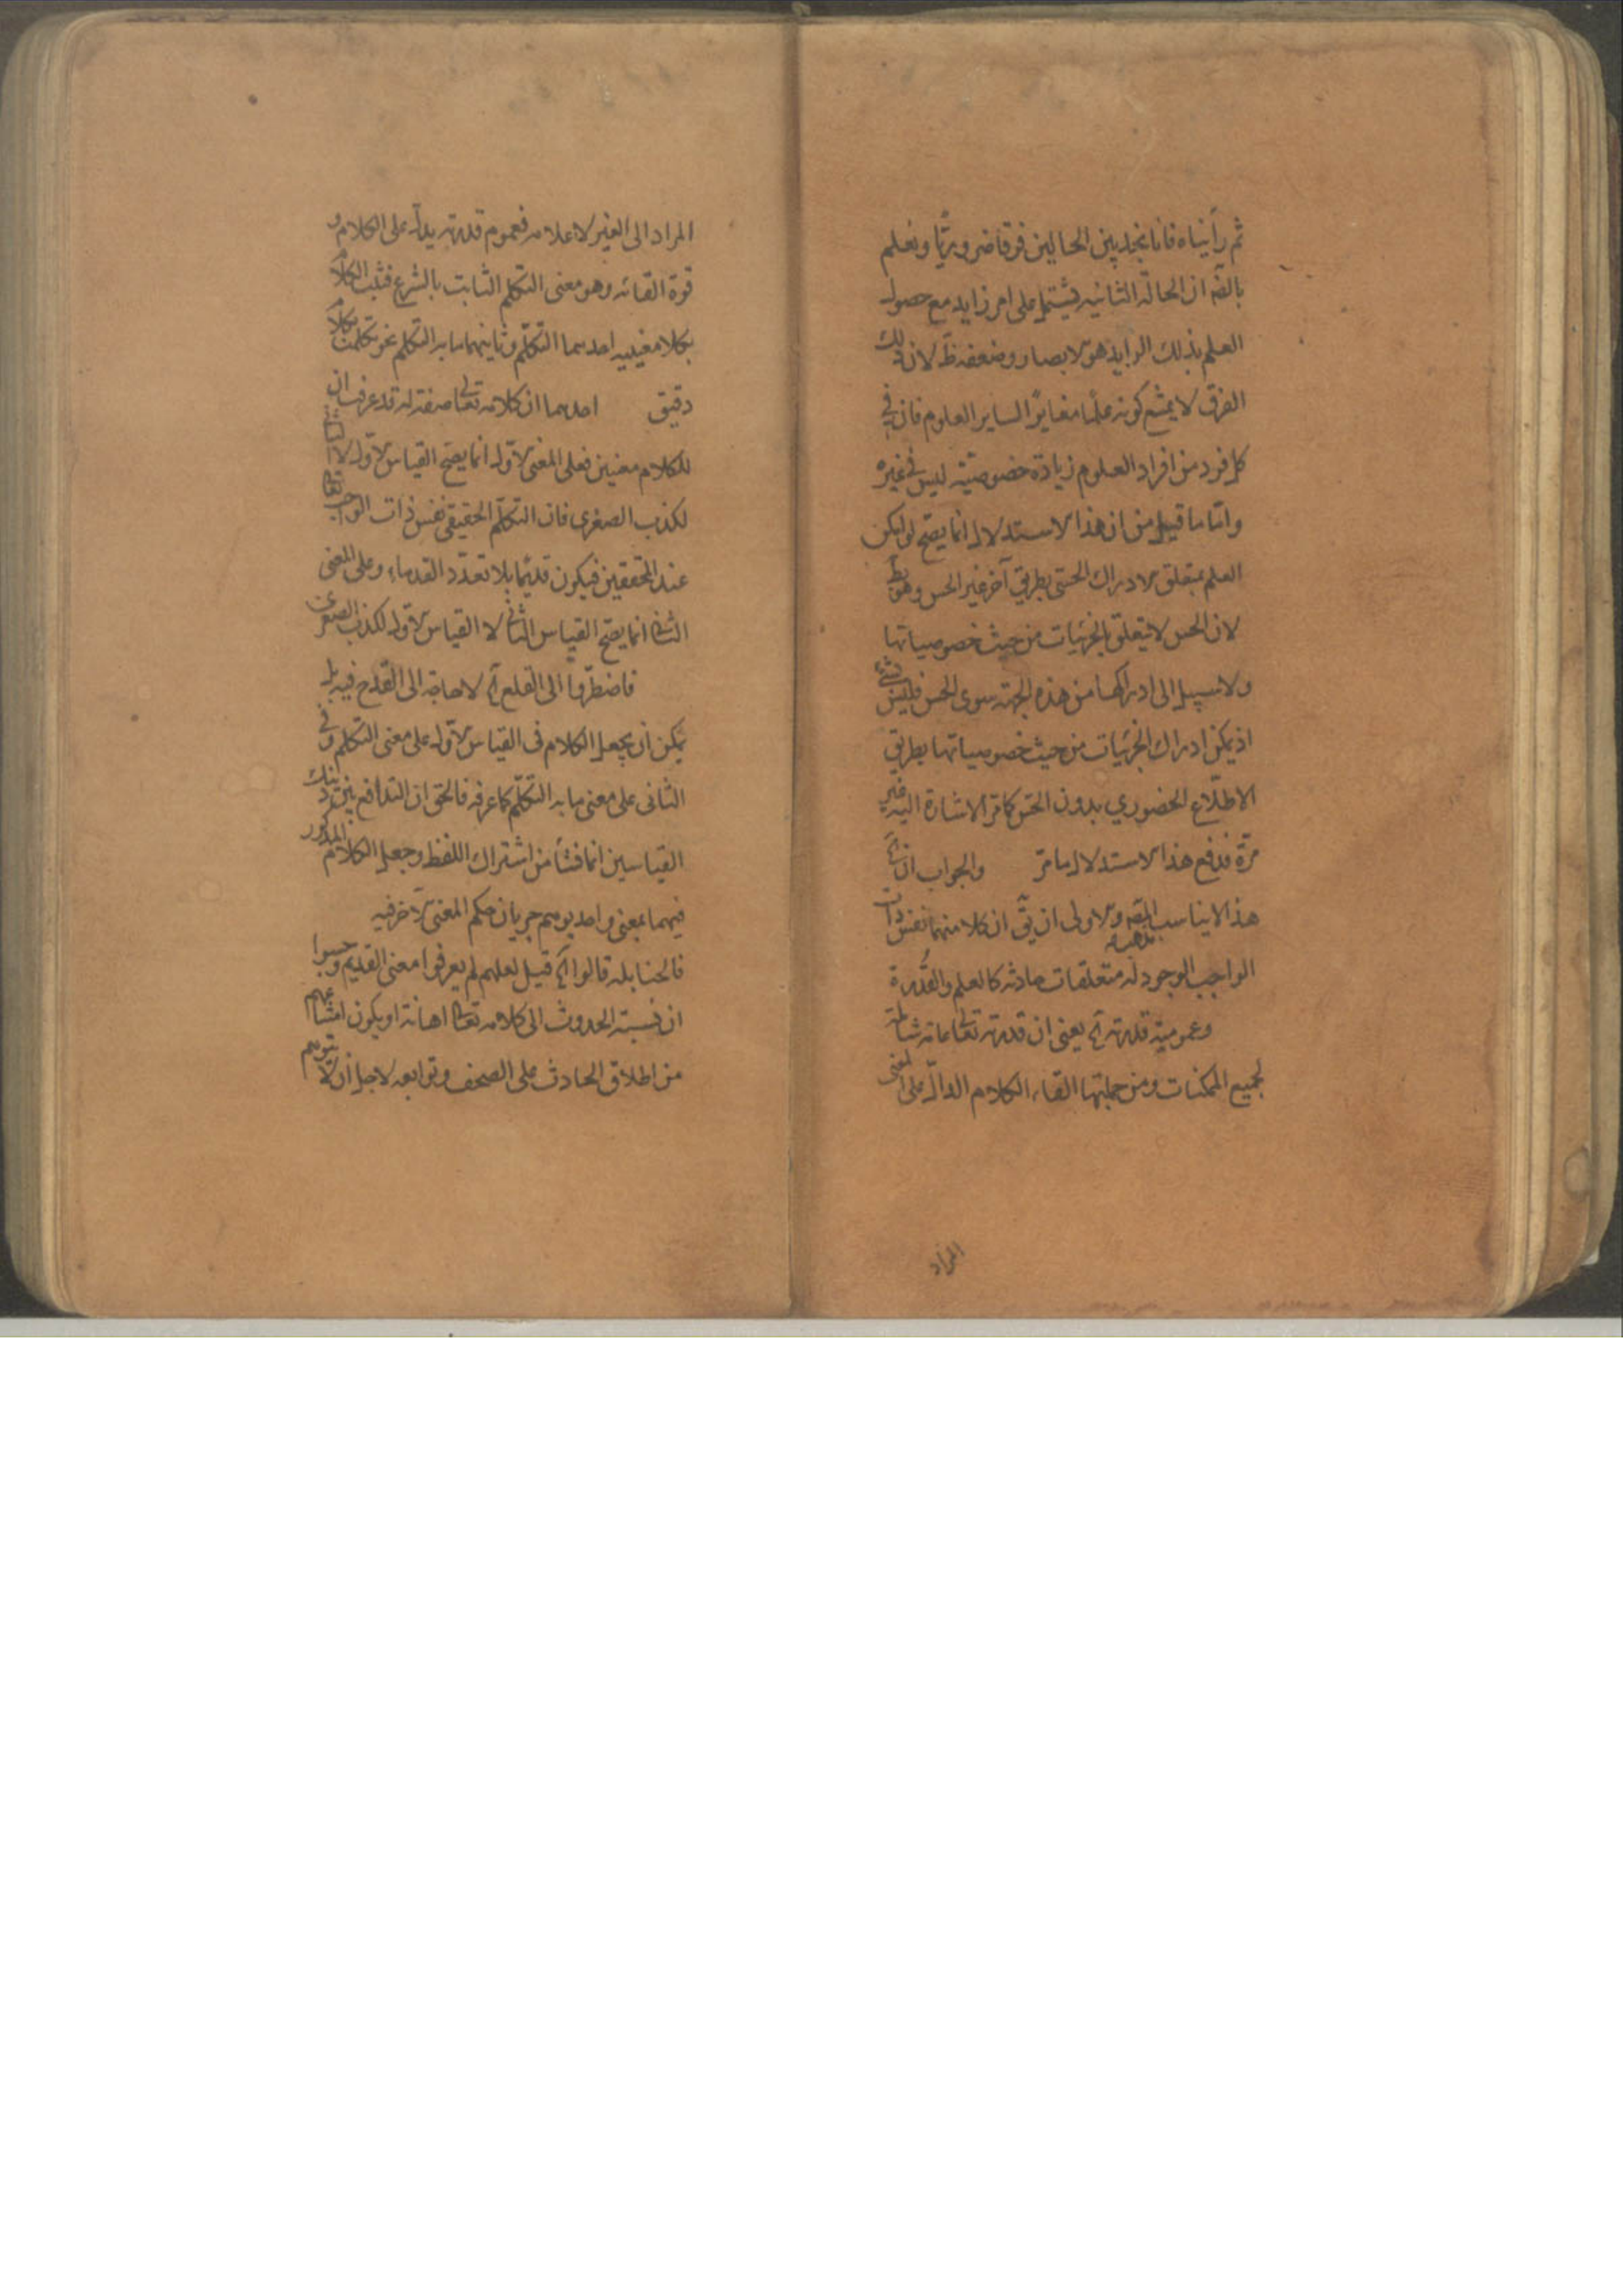 ثم رأيناه فانا نجد بين الحالين فرقا ضروريّا ونعلم
بالضّه ان الحالة الثانيه يشتمل على امر زايد مع حصول
العلم بذلك الزايد هو الابصار وضعفه ظّ لان ذلك
الفرق لا يمنع كونه علمًا مغايرًا لساير العلوم فان في
كل فرد من افراد العلوم زيادة خصوصيّته ليس في غيره
وامّا ما قيل من ان هذا الاستدلال انما يصح لو امكن
العلم بمتعلق الادراك الحسّى بطريق آخر غير الحس وهو بط
لان الحس لا يتعلق بالجزئيات من حيث خصوصياتها
ولا سبيل الى ادراكها من هذه الجهة سوى الحس فليس بشئ
اذ يمكن ادراك الجزئيات من حيث خصوصياتها بطريق
الاطلاع الحضوري بدون الحس كما مرّ الاشارة اليه غير
مرّة فدفع هذا الاستدلال ما مرّ والجواب ان آه
هذا لا يناسب مذهبه والاولى ان يقّ ان كلا منهما نفس ذات
الواجب الوجود له متعلقات حادثه كالعلم والقُدرة
وعمومية قدرته آه يعنى ان قدرته تعالى عامة شاملة
لجميع الممكنات ومن جملتها القاء الكلام الدالّ على المعنى
المراد
المراد الى الغير لاعلامه فعموم قدرته يدلّ على الكلام و
قوة القائه وهو معنى التكلم الثابت بالشرع فثبت الكلام
بكلا معنييه احدهما التكلّم وثانيهما ما به التكلم نحو تكلمت بكلام
دقيق احدهما ان كلامه تعالى صفة له قد عرفت ان
للكلام معنيين فعلى المعنى الاول انما يصح القياس الاول لا الثانى
لكذب الصغرى فان التكلّم الحقيقى نفس ذات الواجب تعالى
عند المحققين فيكون قديمًا بلا تعدّد القدماء وعلى المعنى
الثانى انما يصح القياس الثانى لا القياس الاول لكذب الصغرى
فاضطرّوا الى القلع آه لا حاجة الى القدح فيه بل
يمكن ان يجعل الكلام فى القياس الاول على معنى التكلم وفى
الثانى على معنى ما به التكلّم كما عرفه فالحق ان التدافع بين ذينك
القياسين انما نشأ من اشتراك اللفظ وجعل الكلام المذكور
فيهما بمعنى واحد يوهم جريان حكم المعنى الآخر فيه
فالحنابله قالوا آه قيل لعلهم لم يعرفوا معنى القديم وحسبوا
ان نسبة الحدوث الى كلامه تعالى اهانة او يكون امتناعهم
من اطلاق الحادث على الصحف وتوابعه لاجل ان لا يتوهم